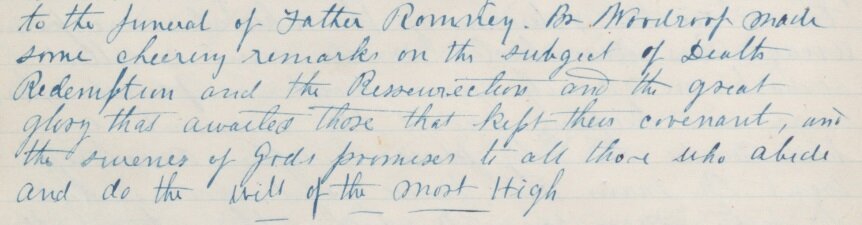 to the funeral of Father Romney. Br Woodroof made
some cheering remarks on the subject of Death
Redemption and the Ressurrection and the great
glory that awaited those that kept their covenant, and
the sureness of Gods promises to all those who abide
and do the will of the most High